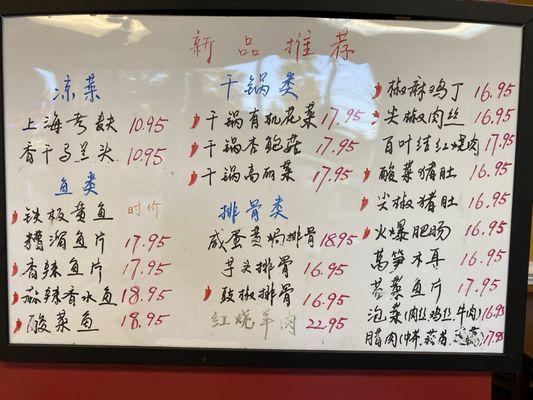 新品推荐
凉菜
上海烤麸 10.95
香干马兰头 10.95
鱼类
铁板黄鱼 时价
糟溜鱼片 17.95
香辣鱼片 17.95
麻辣香水鱼 18.95
酸菜鱼 18.95
干锅类
干锅有机花菜 17.95
干锅杏鲍菇 17.95
干锅高丽菜 17.95
排骨类
咸蛋黄焗排骨 18.95
芋头排骨 16.95
豉椒排骨 16.95
红烧羊肉 22.95
椒麻鸡丁 16.95
尖椒肉丝 16.95
百叶结红烧肉 17.95
酸菜猪肚 16.95
尖椒猪肚 16.95
火爆肥肠 16.95
莴笋木耳 16.95
荠菜鱼片 17.95
泡菜(肉丝,鸡丝,牛肉) 16.95
腊肉( 17.95